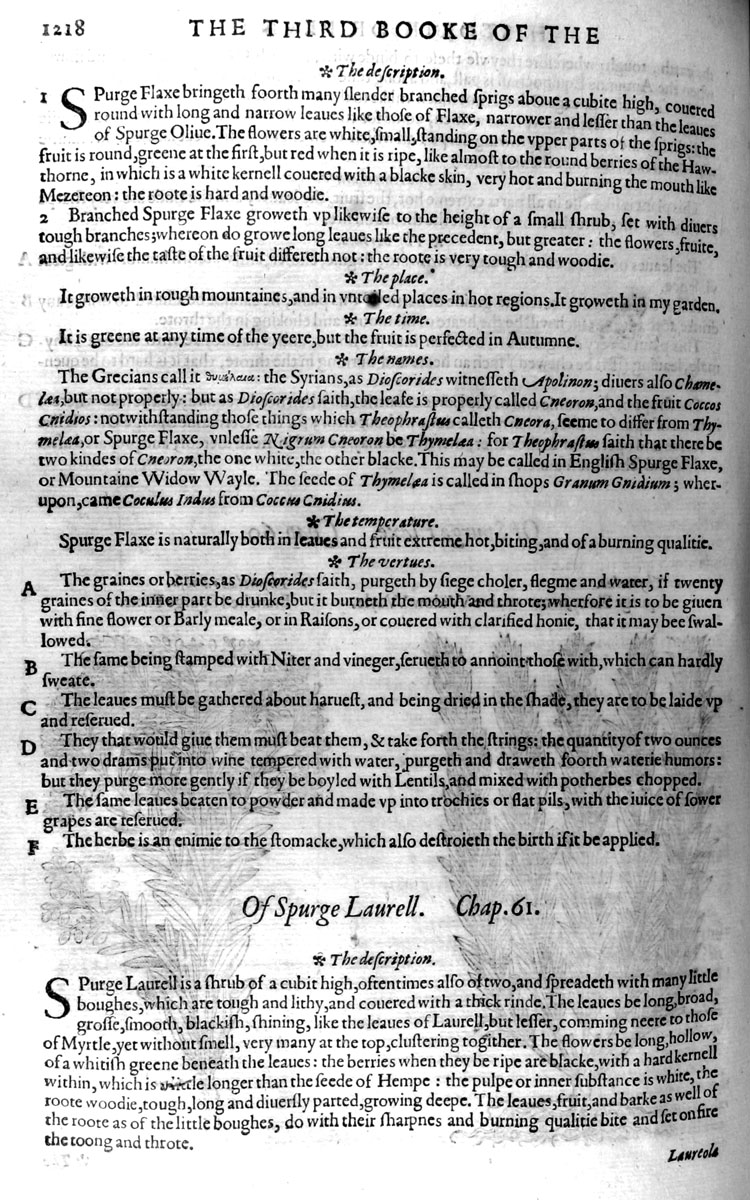 1218 THE THIRD BOOKE OF THE
❇ The deſcription.
1 SPurge Flaxe bringeth foorth many ſlender branched ſprigs aboue a cubite high, couered
round with long and narrow leaues like thoſe of Flaxe, narrower and leſſer than the leaues
of Spurge Oliue. The flowers are white, ſmall, ſtanding on the vpper parts of the ſprigs: the
fruit is round, greene at the firſt, but red when it is ripe, like almoſt to the round berries of the Haw-
thorne, in which is a white kernell couered with a blacke skin, very hot and burning the mouth like
Mezereon: the roote is hard and woodie.
2 Branched Spurge Flaxe groweth vp likewiſe to the height of a ſmall ſhrub, ſet with diuers
tough branches; whereon do growe long leaues like the precedent, but greater: the flowers, fruite,
and likewiſe the taſte of the fruit differeth not: the roote is very tough and woodie.
❇ The place.
It groweth in rough mountaines, and in vntoiled places in hot regions. It groweth in my garden.
❇ The time.
It is greene at any time of the yeere, but the fruit is perfected in Autumne.
❇ The names.
The Grecians call it θυμέλαια: the Syrians, as Dioſcorides witneſſeth Apolinon; diuers alſo Chame-
læa, but not properly: but as Dioſcorides ſaith, the leafe is properly called Cneoron, and the fruit Coccos
Cnidios: notwithſtanding thoſe things which Theophraſtus calleth Cneora, ſeeme to differ from Thy-
melæa, or Spurge Flaxe, vnleſſe Nigrum Cneoron be Thymelæa: for Theophraſtus ſaith that there be
two kindes of Cneoron, the one white, the other blacke. This may be called in Engliſh Spurge Flaxe,
or Mountaine Widow Wayle. The ſeede of Thymelæa is called in ſhops Granum Gnidium; wher-
upon, came Coculus Indus from Coccus Cnidius.
❇ The temperature.
Spurge Flaxe is naturally both in leaues and fruit extreme hot, biting, and of a burning qualitie.
❇ The vertues.
A The graines or berries, as Dioſcorides ſaith, purgeth by ſiege choler, flegme and water, if twenty
graines of the inner part be drunke; but it burneth the mouth and throte; wherfore it is to be giuen
with fine flower or Barly meale, or in Raiſons, or couered with clarified honie, that it may bee ſwal-
lowed.
B The ſame being ſtamped with Niter and vineger, ſerueth to annoint thoſe with, which can hardly
ſweate.
C The leaues muſt be gathered about harueſt, and being dried in the ſhade, they are to be laide vp
and reſerued.
D They that would giue them muſt beat them, & take forth the ſtrings: the quantity of two ounces
and two drams put into wine tempered with water, purgeth and draweth foorth waterie humors:
but they purge more gently if they be boyled with Lentils, and mixed with potherbes chopped.
E The ſame leaues beaten to powder and made vp into trochies or flat pils, with the iuice of ſower
grapes are reſerued.
F The herbe is an enimie to the ſtomacke, which alſo deſtroieth the birth if it be applied.
Of Spurge Laurell. Chap. 61.
❇ The deſcription.
SPurge Laurell is a ſhrub of a cubit high, oftentimes alſo of two, and ſpreadeth with many little
boughes, which are tough and lithy, and couered with a thick rinde. The leaues be long, broad,
groſſe, ſmooth, blackiſh, ſhining, like the leaues of Laurell, but leſſer, comming neere to thoſe
of Myrtle, yet without ſmell, very many at the top, cluſtering togither. The flowers be long, hollow,
of a whitiſh greene beneath the leaues: the berries when they be ripe are blacke, with a hard kernell
within, which is longer than the ſeede of Hempe: the pulpe or inner ſubſtance is white, the
roote woodie, tough, long and diuerſly parted, growing deepe. The leaues, fruit, and barke as well of
the roote as of the little boughes, do with their ſharpnes and burning qualitie bite and ſet on fire
the toong and throte.
Laureola